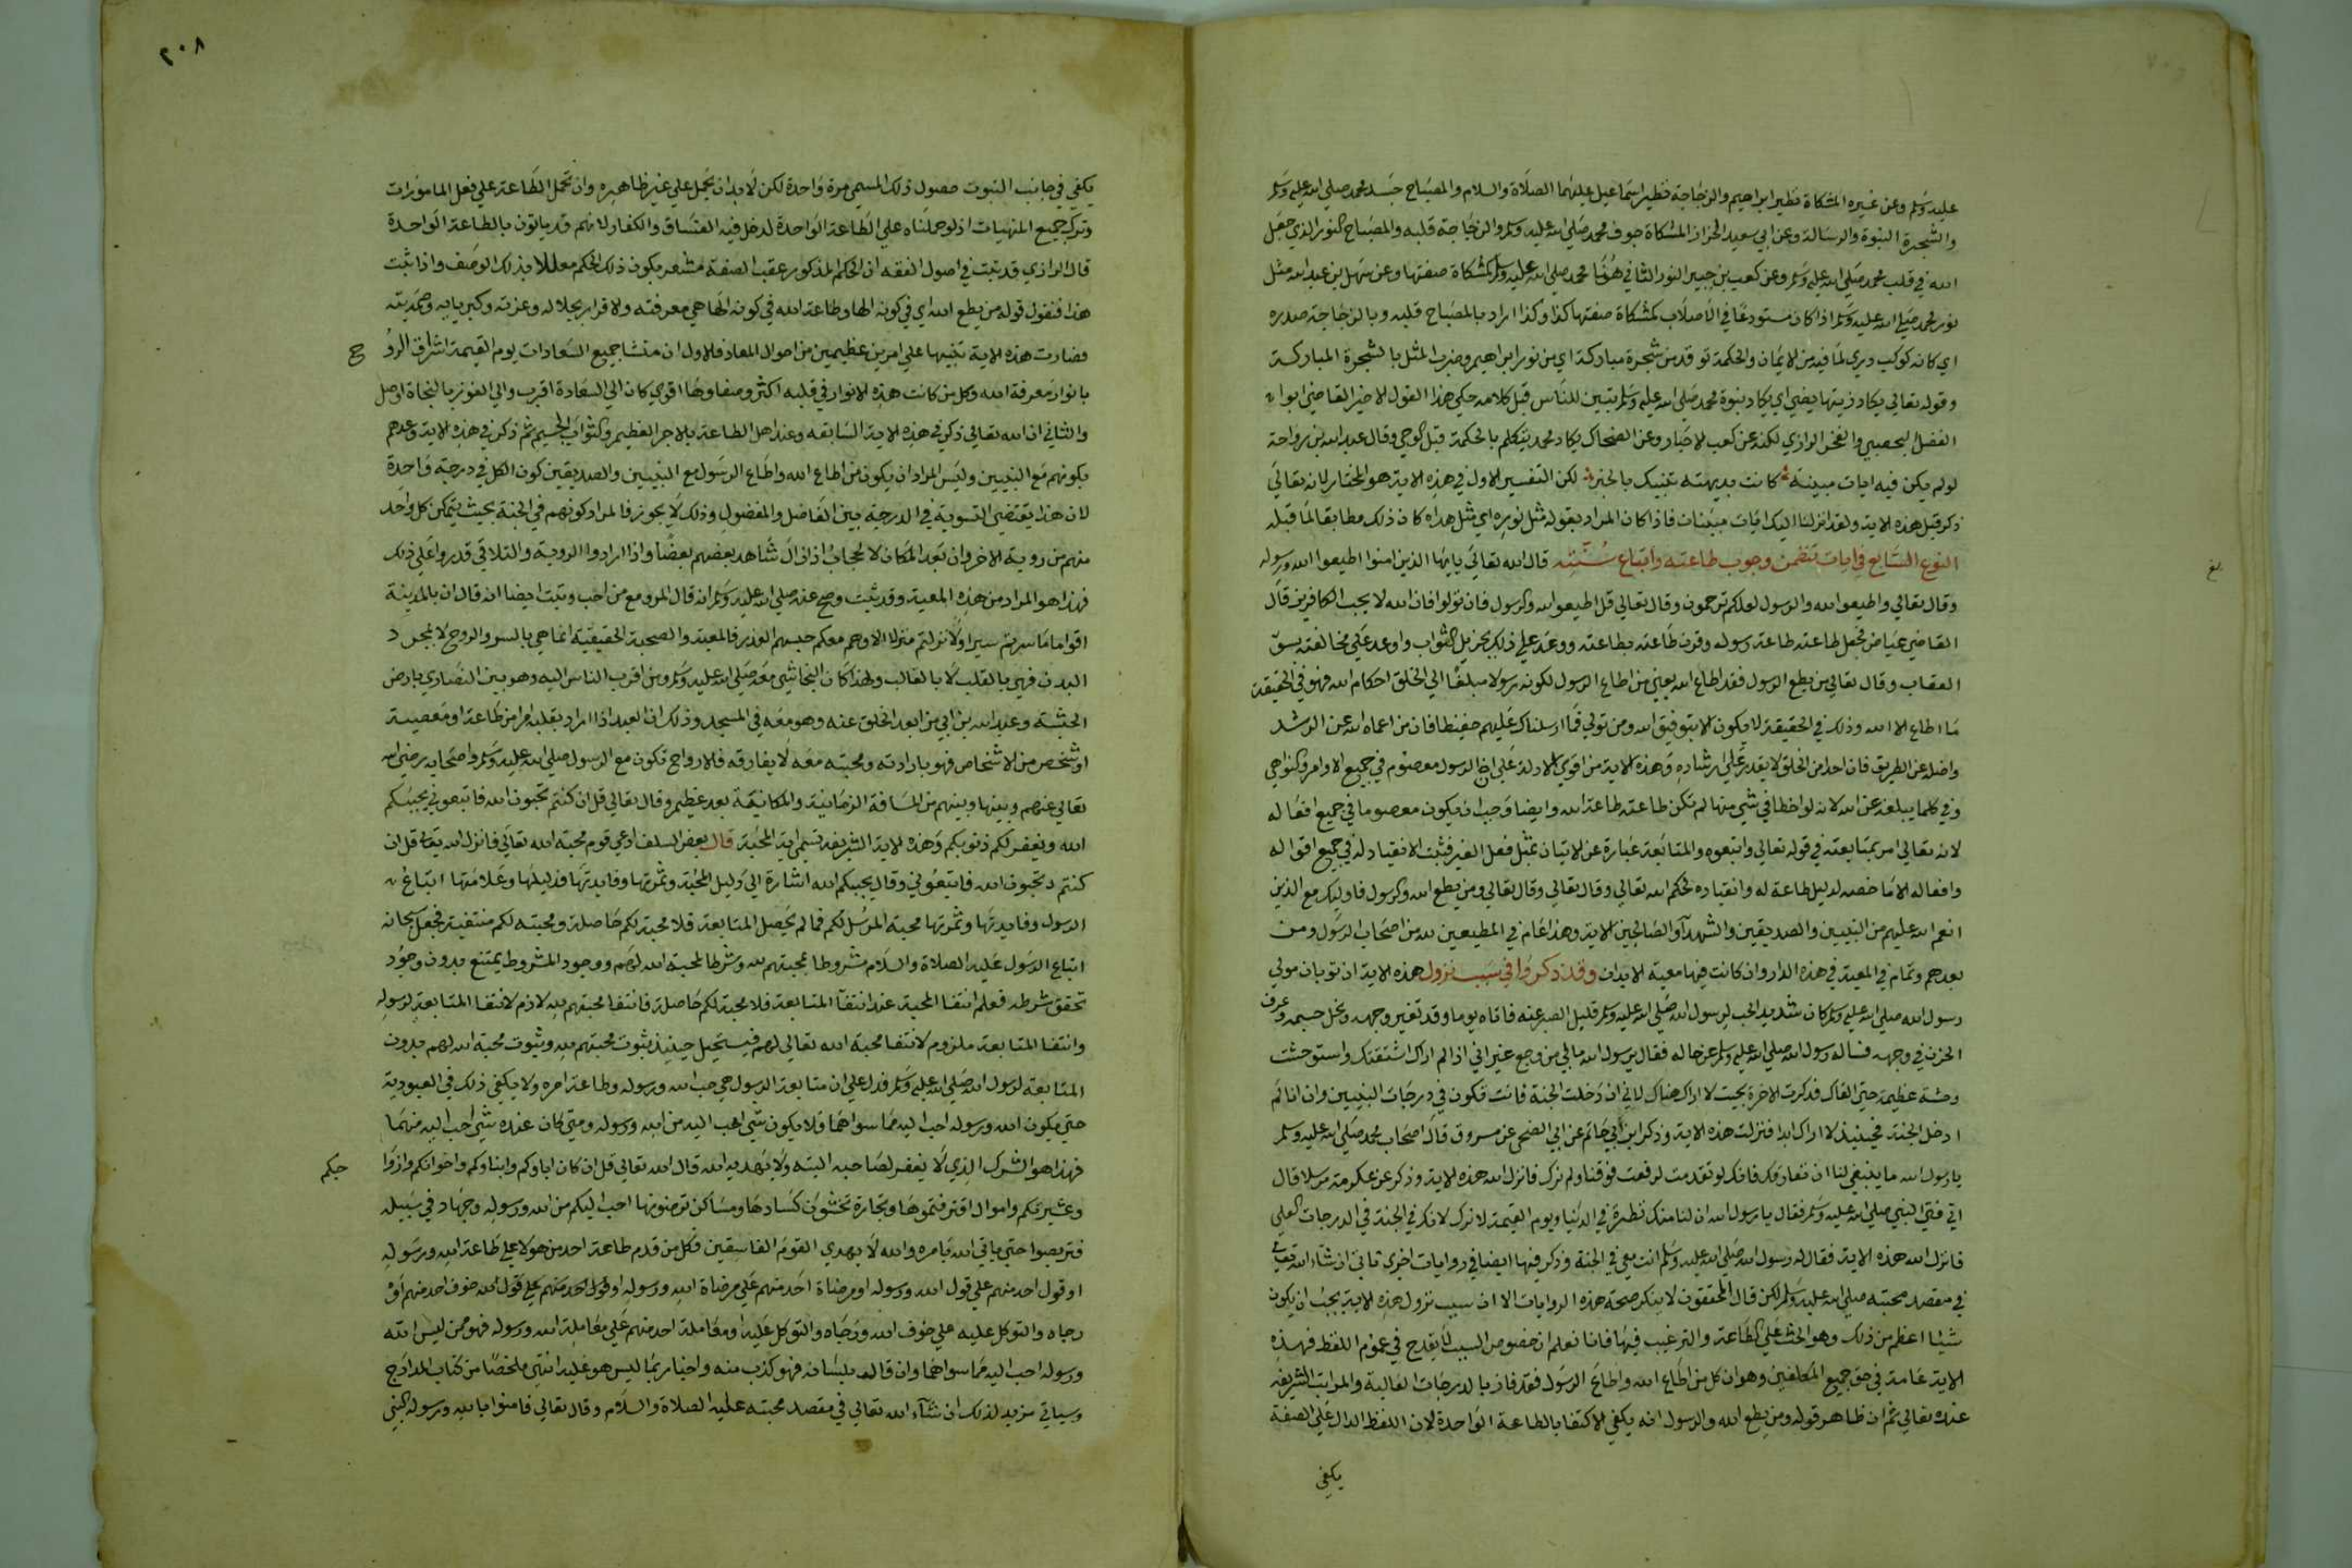 عليه وسلم وعن غيره المشكاة نظير ابراهيم والزجاجة نظير اسماعيل عليهما الصلاة والسلام والمصباح جسد محمد صلى الله عليه وسلم
والشجرة النبوة والرسالة وعن ابي سعيد الخراز المشكاة جوف محمد صلى الله عليه وسلم والزجاجة قلبه والمصباح النور الذي جعل
الله في قلب محمد صلى الله عليه وسلم وعن كعب بن جبير النور الثاني هنا محمد صلى الله عليه وسلم كمشكاة صفتها وعن سهل بن عبد الله مثل
نور محمد صلى الله عليه وسلم اذا كان مستودعا في الاصلاب كمشكاة صفتها كذا وكذا اراد بالمصباح قلبه وبالزجاجة صدره
اي كانه كوكب دري لما فيه من الايمان والحكمة توقد من شجرة مباركة اي من نور ابراهيم وضرب المثل بالشجرة المباركة
وقوله تعالى يكاد زيتها يضئ اي يكاد نبوة محمد صلى الله عليه وسلم تبين للناس قبل كلامه حكى هذا القول الاخير القاضي ابو
الفضل اليحصبي والفخر الرازي لكنه عن كعب الاحبار وعن الضحاك يكاد محمد يتكلم بالحكمة قبل الوحي وقال عبد الله بن رواحة
لو لم يكن فيه ايات مبينة كانت بديهته تنبيك بالخبر لكن التفسير الاول في هذه الاية هو المختار لانه تعالى
ذكر قبل هذه الاية ولقد انزلنا اليك ايات مبينات فاذا كان المراد بقوله مثل نوره اي مثل هداه كان ذلك مطابقا لما قبله
النوع السابع في ايات تتضمن وجوب طاعته واتباع سنته قال الله تعالى يايها الذين امنوا اطيعوا الله ورسوله
وقال تعالى واطيعوا الله والرسول لعلكم ترحمون وقال تعالى قل اطيعوا الله والرسول فان تولوا فان الله لا يحب الكافرين قال
القاضي عياض فجعل طاعته طاعة رسوله وقرن طاعته بطاعته ووعد على ذلك بجزيل الثواب واوعد على مخالفته بسوء
العقاب وقال تعالى من يطع الرسول فقد اطاع الله يعني من اطاع الرسول لكونه رسولا مبلغا الى الخلق احكام الله فهو في الحقيقة
ما اطاع الا الله وذلك في الحقيقة لا يكون الا بتوفيق الله ومن تولى فما ارسلناك عليهم حفيظا فان من اعماه الله عن الرشد
واضله عن الطريق فان احدا من الخلق لا يقدر على ارشاده وهذه الاية من اقوى الادلة على ان الرسول معصوم في جميع الاوامر والنواهي
وفي كلما يبلغه عن الله لانه لو اخطا في شي منها لم تكن طاعته طاعة الله وايضا وجب ان يكون معصوما في جميع افعاله
لانه تعالى امر بمتابعته في قوله تعالى واتبعوه والمتابعة عبارة عن الاتيان بمثل فعل الغير فثبت الانقياد له في جميع اقواله
وافعاله الا ما خصه الدليل طاعة له وانقياده لحكم الله تعالى وقال تعالى وقال تعالى ومن يطع الله والرسول فاوليك مع الذين
انعم الله عليهم من النبيين والصديقين والشهدآ والصالحين الاية وهذا عام في المطيعين لله من اصحاب الرسول ومن
بعدهم وتمام في المعية في هذه الدار وان كانت فيها معية الابدان وقد ذكروا في سبب نزول هذه الاية ان ثوبان مولى
رسول الله صلى الله عليه وسلم كان شديد الحب لرسول الله صلى الله عليه وسلم قليل الصبر عنه فاتاه يوما وقد تغير وجهه ونحل جسمه وعرف
الحزن في وجهه فساله رسول الله صلى الله عليه وسلم عن حاله فقال يرسول الله ما بي من وجع غير اني اذا لم ارك اشتقتك واستوحشت
وحشة عظيمة حتى القاك فذكرت الاخرة بحيث لا اراك هناك لاني ان دخلت الجنة فانت تكون في درجات النبيين وان انا لم
ادخل الجنة فحينيذ لا اراك ابدا فنزلت هذه الاية وذكر ابن ابي حاتم عن ابي الضحى عن مسروق قال اصحاب محمد صلى الله عليه وسلم
يا رسول الله ما ينبغي لنا ان نفارقك فانك لو تقدمت لرفعت فوقنا ولم نرك فانزل الله هذه الاية وذكر عن عكرمة مرسلا قال
اتى فتى النبي صلى الله عليه وسلم فقال يا رسول الله ان لنا منك نظرة في الدنيا ويوم القيمة لا نرك لانك في الجنة في الدرجات العلى
فانزل الله هذه الاية فقال له رسول الله صلى الله عليه وسلم انت معي في الجنة وذكر فيها ايضا في روايات اخرى تاتي ان شاء الله تعالى
في مقصد محبته صلى الله عليه وسلم لكن قال المحققون لا ينكر صحة هذه الروايات الا ان سبب نزول هذه الاية يجب ان يكون
شيئا اعظم من ذلك وهو الحث على الطاعة والترغيب فيها فانا نعلم ان خصوص السبب لا يقدح في عموم اللفظ فهذه
الاية عامة في حق جميع المكلفين وهو ان كل من اطاع الله واطاع الرسول فقد فاز بالدرجات العالية والمراتب الشريفة
عنده تعالى ثم ان ظاهر قوله ومن يطع الله والرسول انه يكفي الاكتفا بالطاعة الواحدة لان اللفظ الدال على الصفة
يكفي
٢٠٨
يكفي في جانب الثبوت حصول ذلك المسمى مرة واحدة لكن لا بد ان يحمل على غير ظاهره وان تحمل الطاعة على فعل المامورات
وترك جميع المنهيات اذ لو حملناه على الطاعة الواحدة لدخل فيه الفساق والكفار لانهم قد ياتون بالطاعة الواحدة
قال الرازي قد ثبت في اصول الفقه ان الحكم المذكور عقب الصفة مشعر بكون ذلك الحكم معللا بذلك الوصف واذا ثبت
هذا فنقول قوله من يطع الله اي في كونه الها وطاعة الله في كونه الها هي معرفته والاقرار بجلاله وعزته وكبريايه وصمديته
فصارت هذه الاية تنبيها على امرين عظيمين من احوال المعاد فالاول ان منشا جميع السعادات يوم القيمة اشراق الروح
بانوار معرفة الله وكل من كانت هذه الانوار في قلبه اكثر وصفاوها اقوى كان الى السعادة اقرب والى الفوز بالنجاة اوصل
والثاني ان الله تعالى ذكر في هذه الاية السابقه وعد اهل الطاعة بالاجر العظيم والثواب الجسيم ثم ذكر في هذه الاية وعدهم
بكونهم مع النبيين وليس المراد ان يكون من اطاع الله واطاع الرسول مع النبيين والصديقين كون الكل في درجة واحدة
لان هذا يقتضي التسوية في الدرجة بين الفاضل والمفضول وذلك لا يجوز فالمراد كونهم في الجنة بحيث يتمكن كل واحد
منهم من روية الاخر وان بعد المكان لان الحجاب اذا زال شاهد بعضهم بعضا واذا ارادوا الروية والتلاقي قدروا على ذلك
فهذا هو المراد من هذه المعية وقد ثبت وصح عنه صلى الله عليه وسلم انه قال المرء مع من احب وثبت ايضا انه قال ان بالمدينة
اقواما ما سرتم سيرا ولا نزلتم منزلا الا وهم معكم حبسهم العذر فالمعية والصحبة الحقيقية انما هي بالسر والروح لا بمجرد
البدن فهي بالقلب لا بالقالب ولهذا كان النجاشي معه صلى الله عليه وسلم ومن اقرب الناس اليه وهو بين النصارى بارض
الحبشة وعبد الله بن ابي من ابعد الخلق عنه وهو معه في المسجد وذلك ان العبد اذا اراد بقلبه امرا من طاعة او معصية
او شخص من الاشخاص فهو بارادته ومحبته معه لا يفارقه فالارواح تكون مع الرسول صلى الله عليه وسلم واصحابه رضي الله
تعالى عنهم وبينها وبينهم من المسافة الزمانية والمكانية بعد عظيم وقال تعالى قل ان كنتم تحبون الله فاتبعوني يحببكم
الله ويغفر لكم ذنوبكم وهذه الاية الشريفة تسمى اية المحبة قال بعض السلف ادعى قوم محبة الله تعالى فانزل الله تعالى قل ان
كنتم تحبون الله فاتبعوني وقال يحببكم الله اشارة الى دليل المحبة وثمرتها وفايدتها فدليلها وعلامتها اتباع
الرسول وفايدتها وثمرتها محبة المرسل لكم فما لم يحصل المتابعة فلا محبة لكم حاصلة ومحبته لكم منتفية فجعل سبحانه
اتباع الرسول عليه الصلاة والسلام مشروطا بمحبتهم لله وشرطا لمحبة الله لهم ووجود المشروط يمتنع بدون وجود
تحقق شرطه فعلم انتفا المحبة عند انتفآ المتابعة فلا محبة لكم حاصلة فانتفا محبتهم لله لازم لانتفا المتابعة لرسوله
وانتفا المتابعة ملزوم لانتفا محبة الله تعالى لهم فيستحيل حينيذ ثبوت محبتهم لله وثبوت محبة الله لهم بدون
المتابعة لرسول الله صلى الله عليه وسلم فدل على ان متابعة الرسول هي حب الله ورسوله وطاعة امره ولا يكفي ذلك في العبودية
حتى يكون الله ورسوله احب اليه مما سواهما فلا يكون شي احب اليه من الله ورسوله ومتى كان عنده شي احب اليه منهما
فهذا هو الشرك الذي لا يغفر لصاحبه البتة ولا يهديه الله قال الله تعالى قل ان كان اباوكم وابناوكم واخوانكم وازواجكم
وعشيرتكم واموال اقترفتموها وتجارة تخشون كسادها ومساكن ترضونها احب اليكم من الله ورسوله وجهاد في سبيله
فتربصوا حتى ياتي الله بامره والله لا يهدي القوم الفاسقين فكل من قدم طاعة احد من هولا على طاعة الله ورسوله
او قول احد منهم على قول الله ورسوله او مرضاة احد منهم على مرضاة الله ورسوله او خوف احد منهم او
رجاه والتوكل عليه على خوف الله ورجاه والتوكل عليه او معاملة احد منهم على معاملة الله ورسوله فهو ممن ليس الله
ورسوله احب اليه مما سواهما وان قاله بلسانه فهو كذب منه واخبار بما ليس هو عليه انتهى ملخصا من كتاب المدارج
وسياتي مزيد لذلك ان شآء الله تعالى في مقصد محبته عليه الصلاة والسلام وقال تعالى فامنوا بالله ورسوله النبي